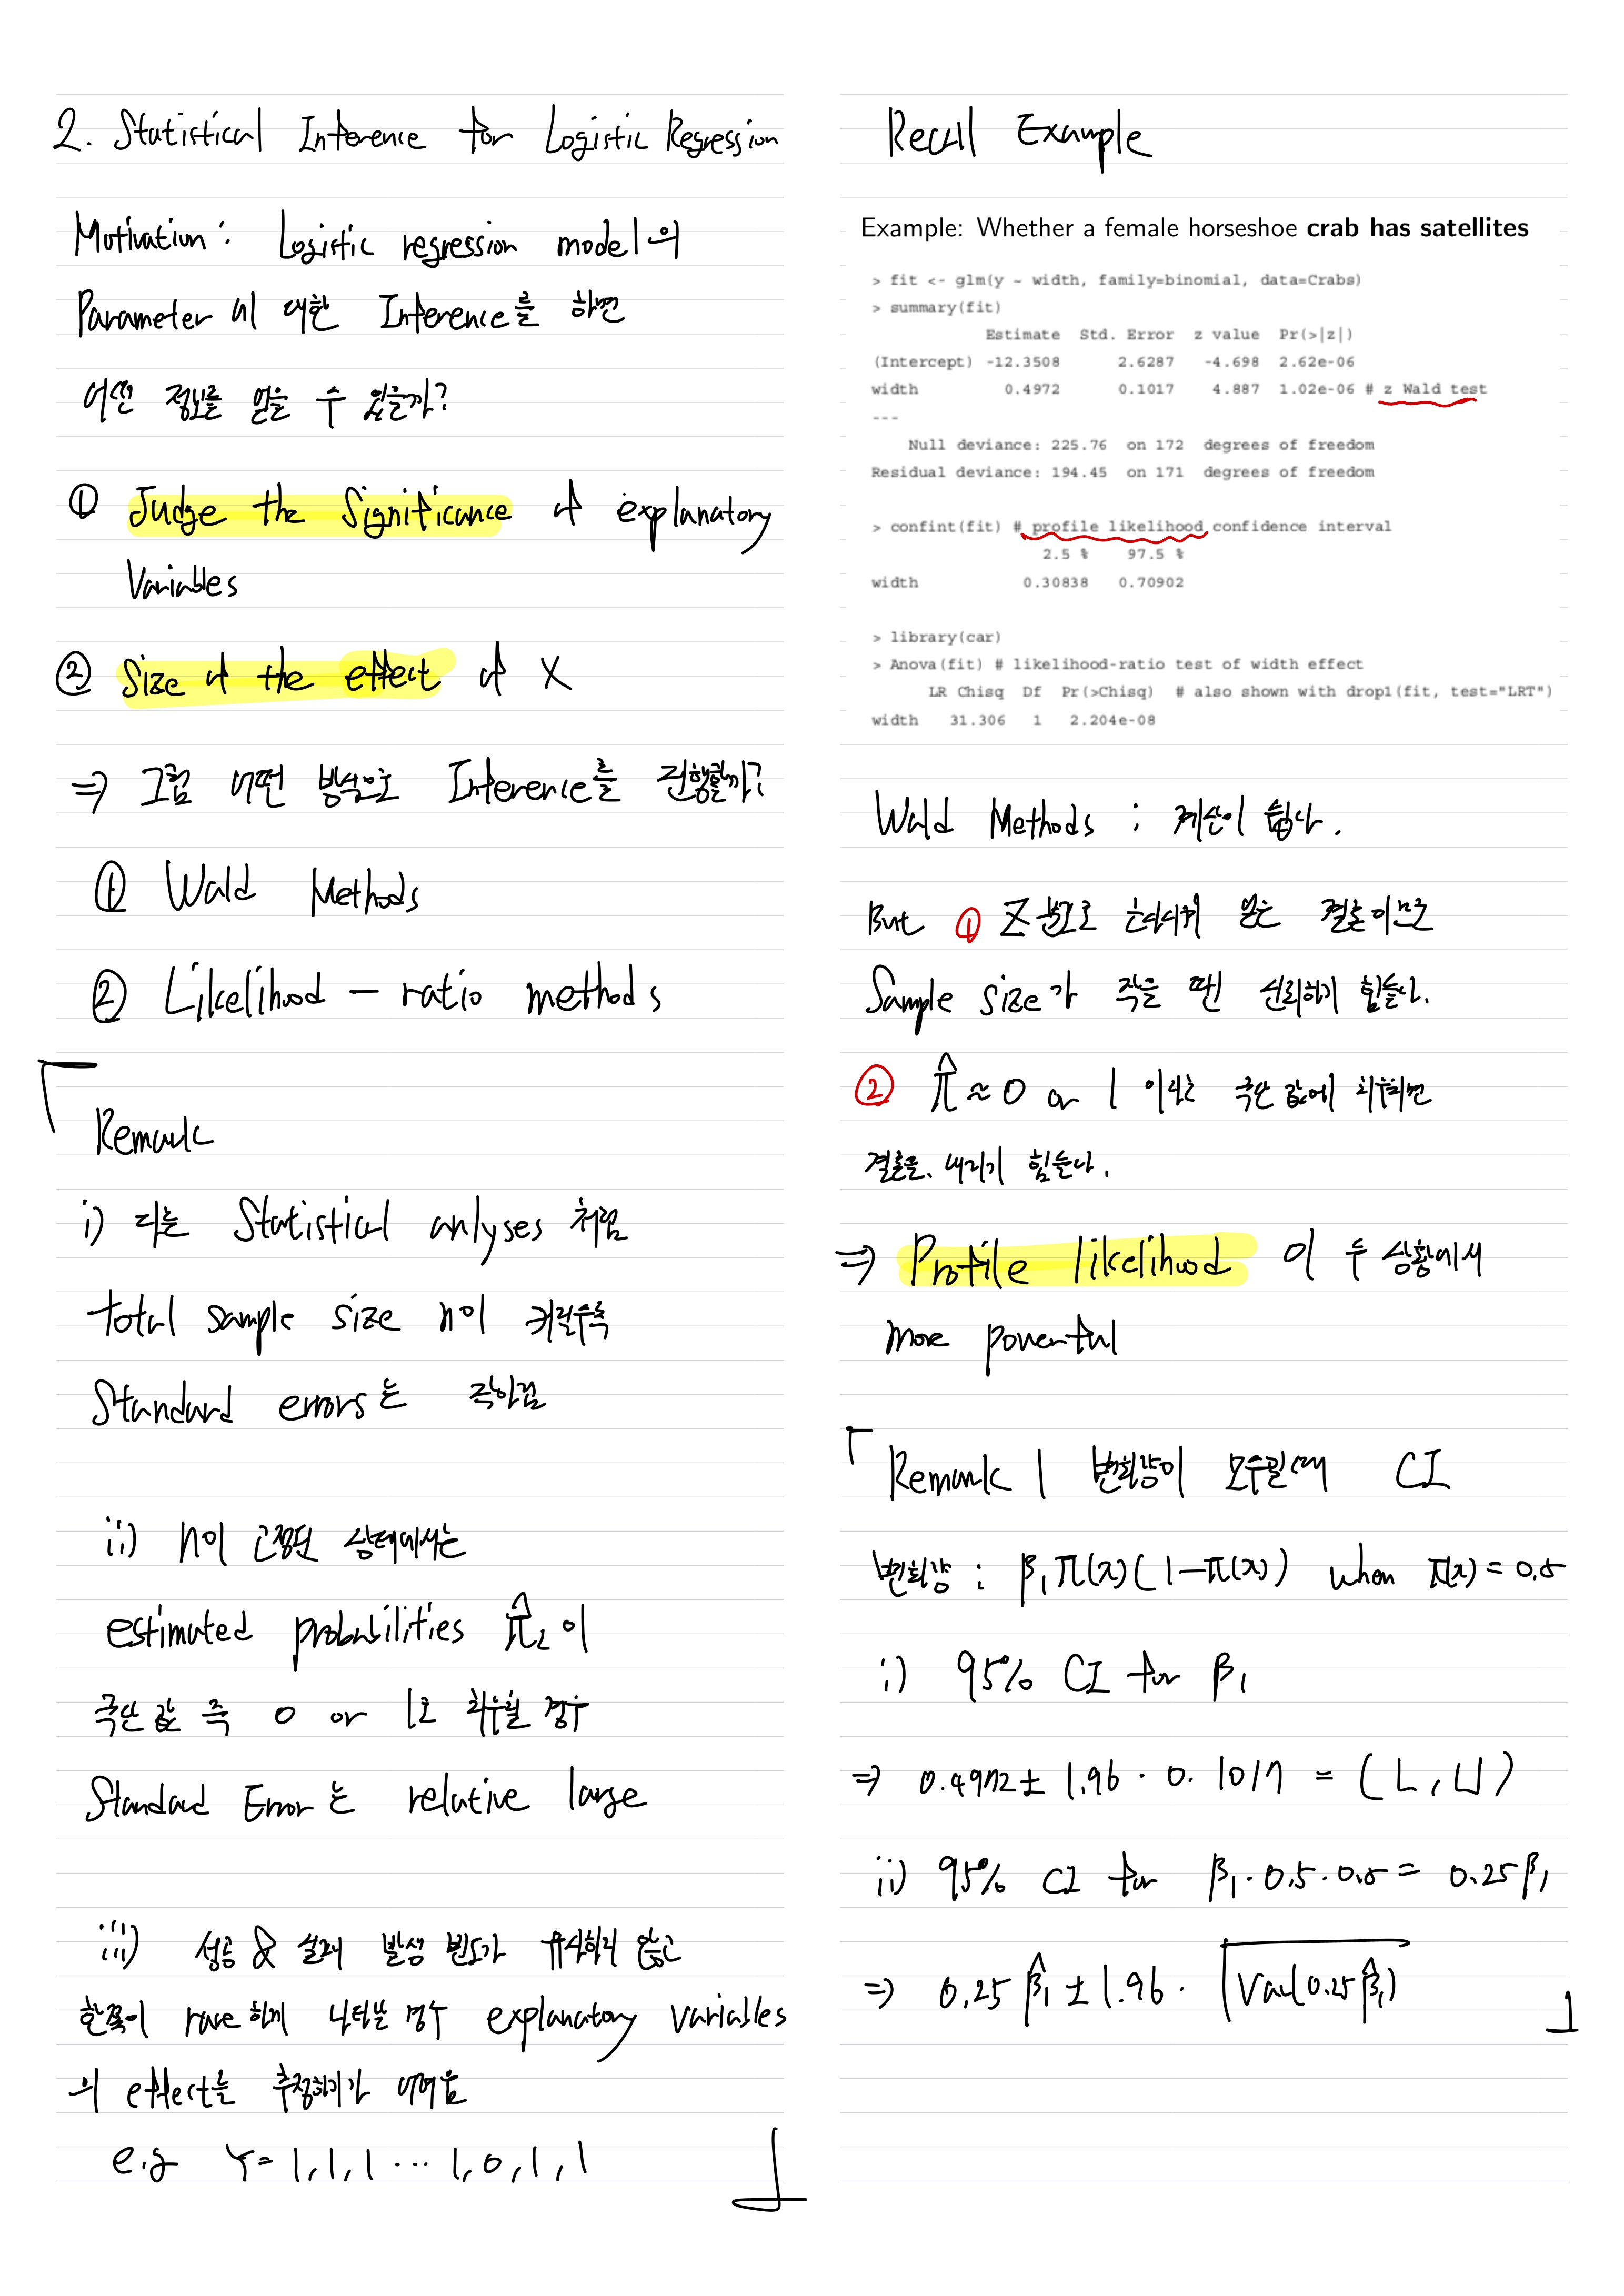 2. Statistical Inference for Logistic Regression
Motivation : Logistic regression model의
Parameter에 대한 Inference를 하면
어떤 정보를 얻을 수 있을까?
① Judge the Significance of explanatory
Variables
② Size of the effect of X
⇒ 그럼 어떤 방식으로 Inference를 진행할까?
① Wald Methods
② Likelihood - ratio methods
Remark
i) 다른 Statistical anlyses 처럼
total sample size n이 커질수록
Standard errors는 작아짐
ii) n이 고정된 상태에서는
estimated probabilities π̂ᵢ 이
극단 값 즉 0 or 1로 치우칠 경우
Standard Error는 relative large
iii) 성공 & 실패 발생 빈도가 유사하지 않고
한쪽이 rare 하게 나타날 경우 explanatory variables
의 effect는 추정하기가 어려움
e.g Y = 1, 1, 1 ... 1, 0, 1, 1
Recall Example
Example: Whether a female horseshoe crab has satellites
> fit <- glm(y ~ width, family=binomial, data=Crabs)
> summary(fit)
Estimate Std. Error z value Pr(>|z|)
(Intercept) -12.3508 2.6287 -4.698 2.62e-06
width 0.4972 0.1017 4.887 1.02e-06 # z Wald test
---
Null deviance: 225.76 on 172 degrees of freedom
Residual deviance: 194.45 on 171 degrees of freedom
> confint(fit) # profile likelihood confidence interval
2.5 % 97.5 %
width 0.30838 0.70902
> library(car)
> Anova(fit) # likelihood-ratio test of width effect
LR Chisq Df Pr(>Chisq) # also shown with drop1(fit, test="LRT")
width 31.306 1 2.204e-08
Wald Methods : 계산이 쉽다.
But ① Z분포로 근사시켜 얻은 결론이므로
Sample size가 작을 땐 신뢰하기 힘들다.
② π̂ ≈ 0 or 1 이라는 극단 값에 치우치면
결론을 내리기 힘들다.
⇒ Profile likelihood 이 두 상황에서
more powerful
Remark 1 변화량이 모수일 때 CI
변화량 : β₁π(x)(1-π(x)) when π(x) = 0.5
i) 95% CI for β₁
⇒ 0.4972 ± 1.96 · 0.1017 = (L, U)
ii) 95% CI for β₁ · 0.5 · 0.5 = 0.25β₁
⇒ 0.25 β̂₁ ± 1.96 · √Var(0.25 β̂₁)